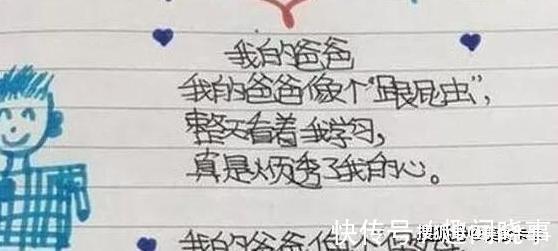 我的爸爸
我的爸爸像个"跟屁虫",
整天看着我学习,
真是烦透了我的心。
我的爸爸像个
快传号/趣闻晓事